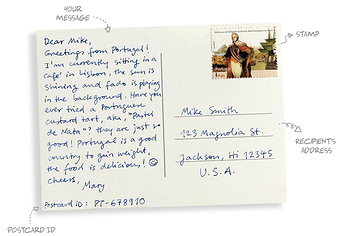 YOUR
MESSAGE
STAMP
Dear Mike,
Greetings from Portugal!
I'm currently sitting in a
café in Lisbon, the sun is
shining and fado is playing
in the background. Have you
ever tried a Portuguese
custard tart, aka, "Pastel
de Nata"? they are just so
good! Portugal is a good
country to gain weight,
the food is delicious! ☺
Cheers,
Mary
Postcard ID: PT-678910
Mike Smith
123 Magnolia St.
Jackson, Hi 12345
U.S.A.
RECIPIENT'S
ADDRESS
POSTCARD ID